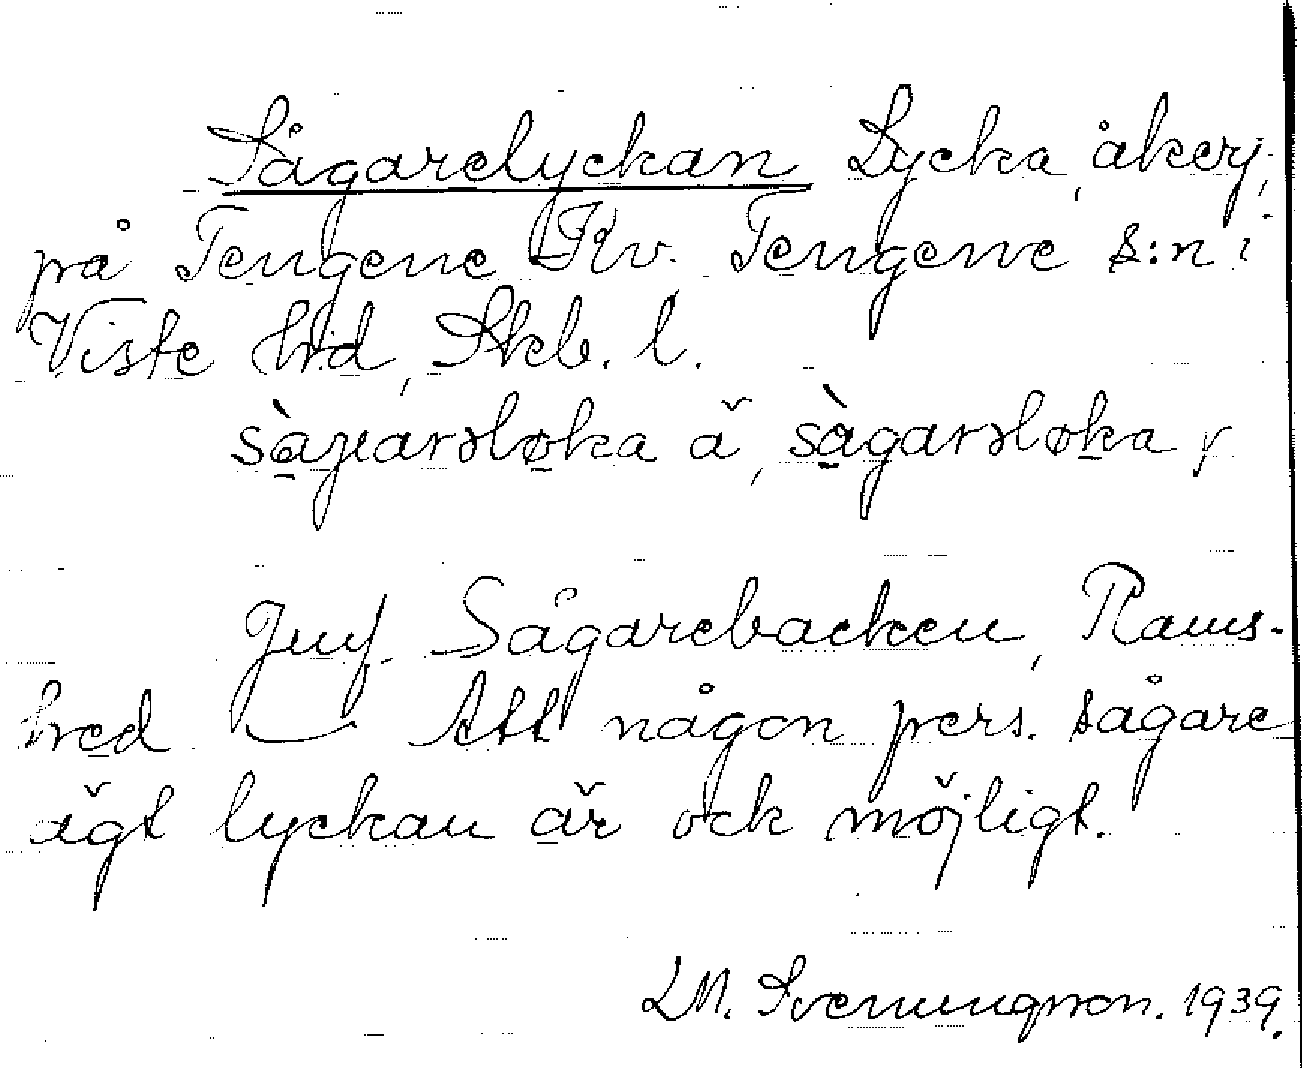 Sågarelyckan Lycka, åkerj.
på Tengene Kv. Tengene s:n i
Viste hrd, Skb. l.
sàgarsløka ä, sàgarsløka,
Jmf. Sågarebacken, Rams-
hred Att någon pers. sågare
ägt lyckan är ock möjligt.
LM. Svenungsson. 1939.